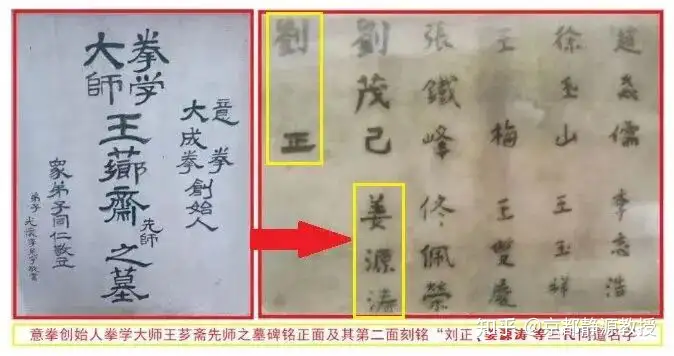 意拳
大成拳創始人
拳学
大師
王薌齋
先師
之墓
眾弟子同仁敬立
弟子
李志浩
徐玉山 王玉祥
王梅 王雙慶
張鐵峰 佟佩榮
劉茂己 姜源濤
劉正
意拳创始人拳学大师王芗斋先师之墓碑铭正面及其第二面刻铭“刘正、姜源涛 等三代同道名字
知乎 @京都静源教授